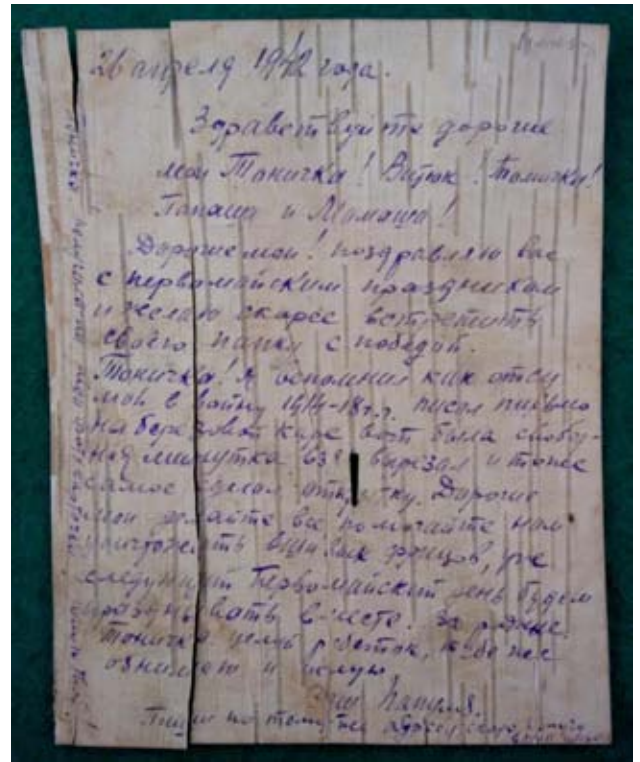 26 апреля 1942 года.
Здравствуйте дорогие
мои Тоничка! Витюк! Томочка!
Папаша и Мамаша!
Дорогие мои! поздравляю вас
с первомайским праздником
и желаю скорее встретить
своего папку с победой.
Тоничка! Я вспомнил как отец
мой в войну 1914-18 г.г. писал письмо
на березовой коре вот была свобод-
ная минутка взял вырезал и тоже
самое сделал открытку. Дорогие
мои делайте все помогайте нам
уничтожать
следующий Первомайский день будем
праздновать вместе.
Тоничка целуй ребяток, тебя же
обнимаю и целую
Ваш Папуля.
Пиши по тому же адресу скоро